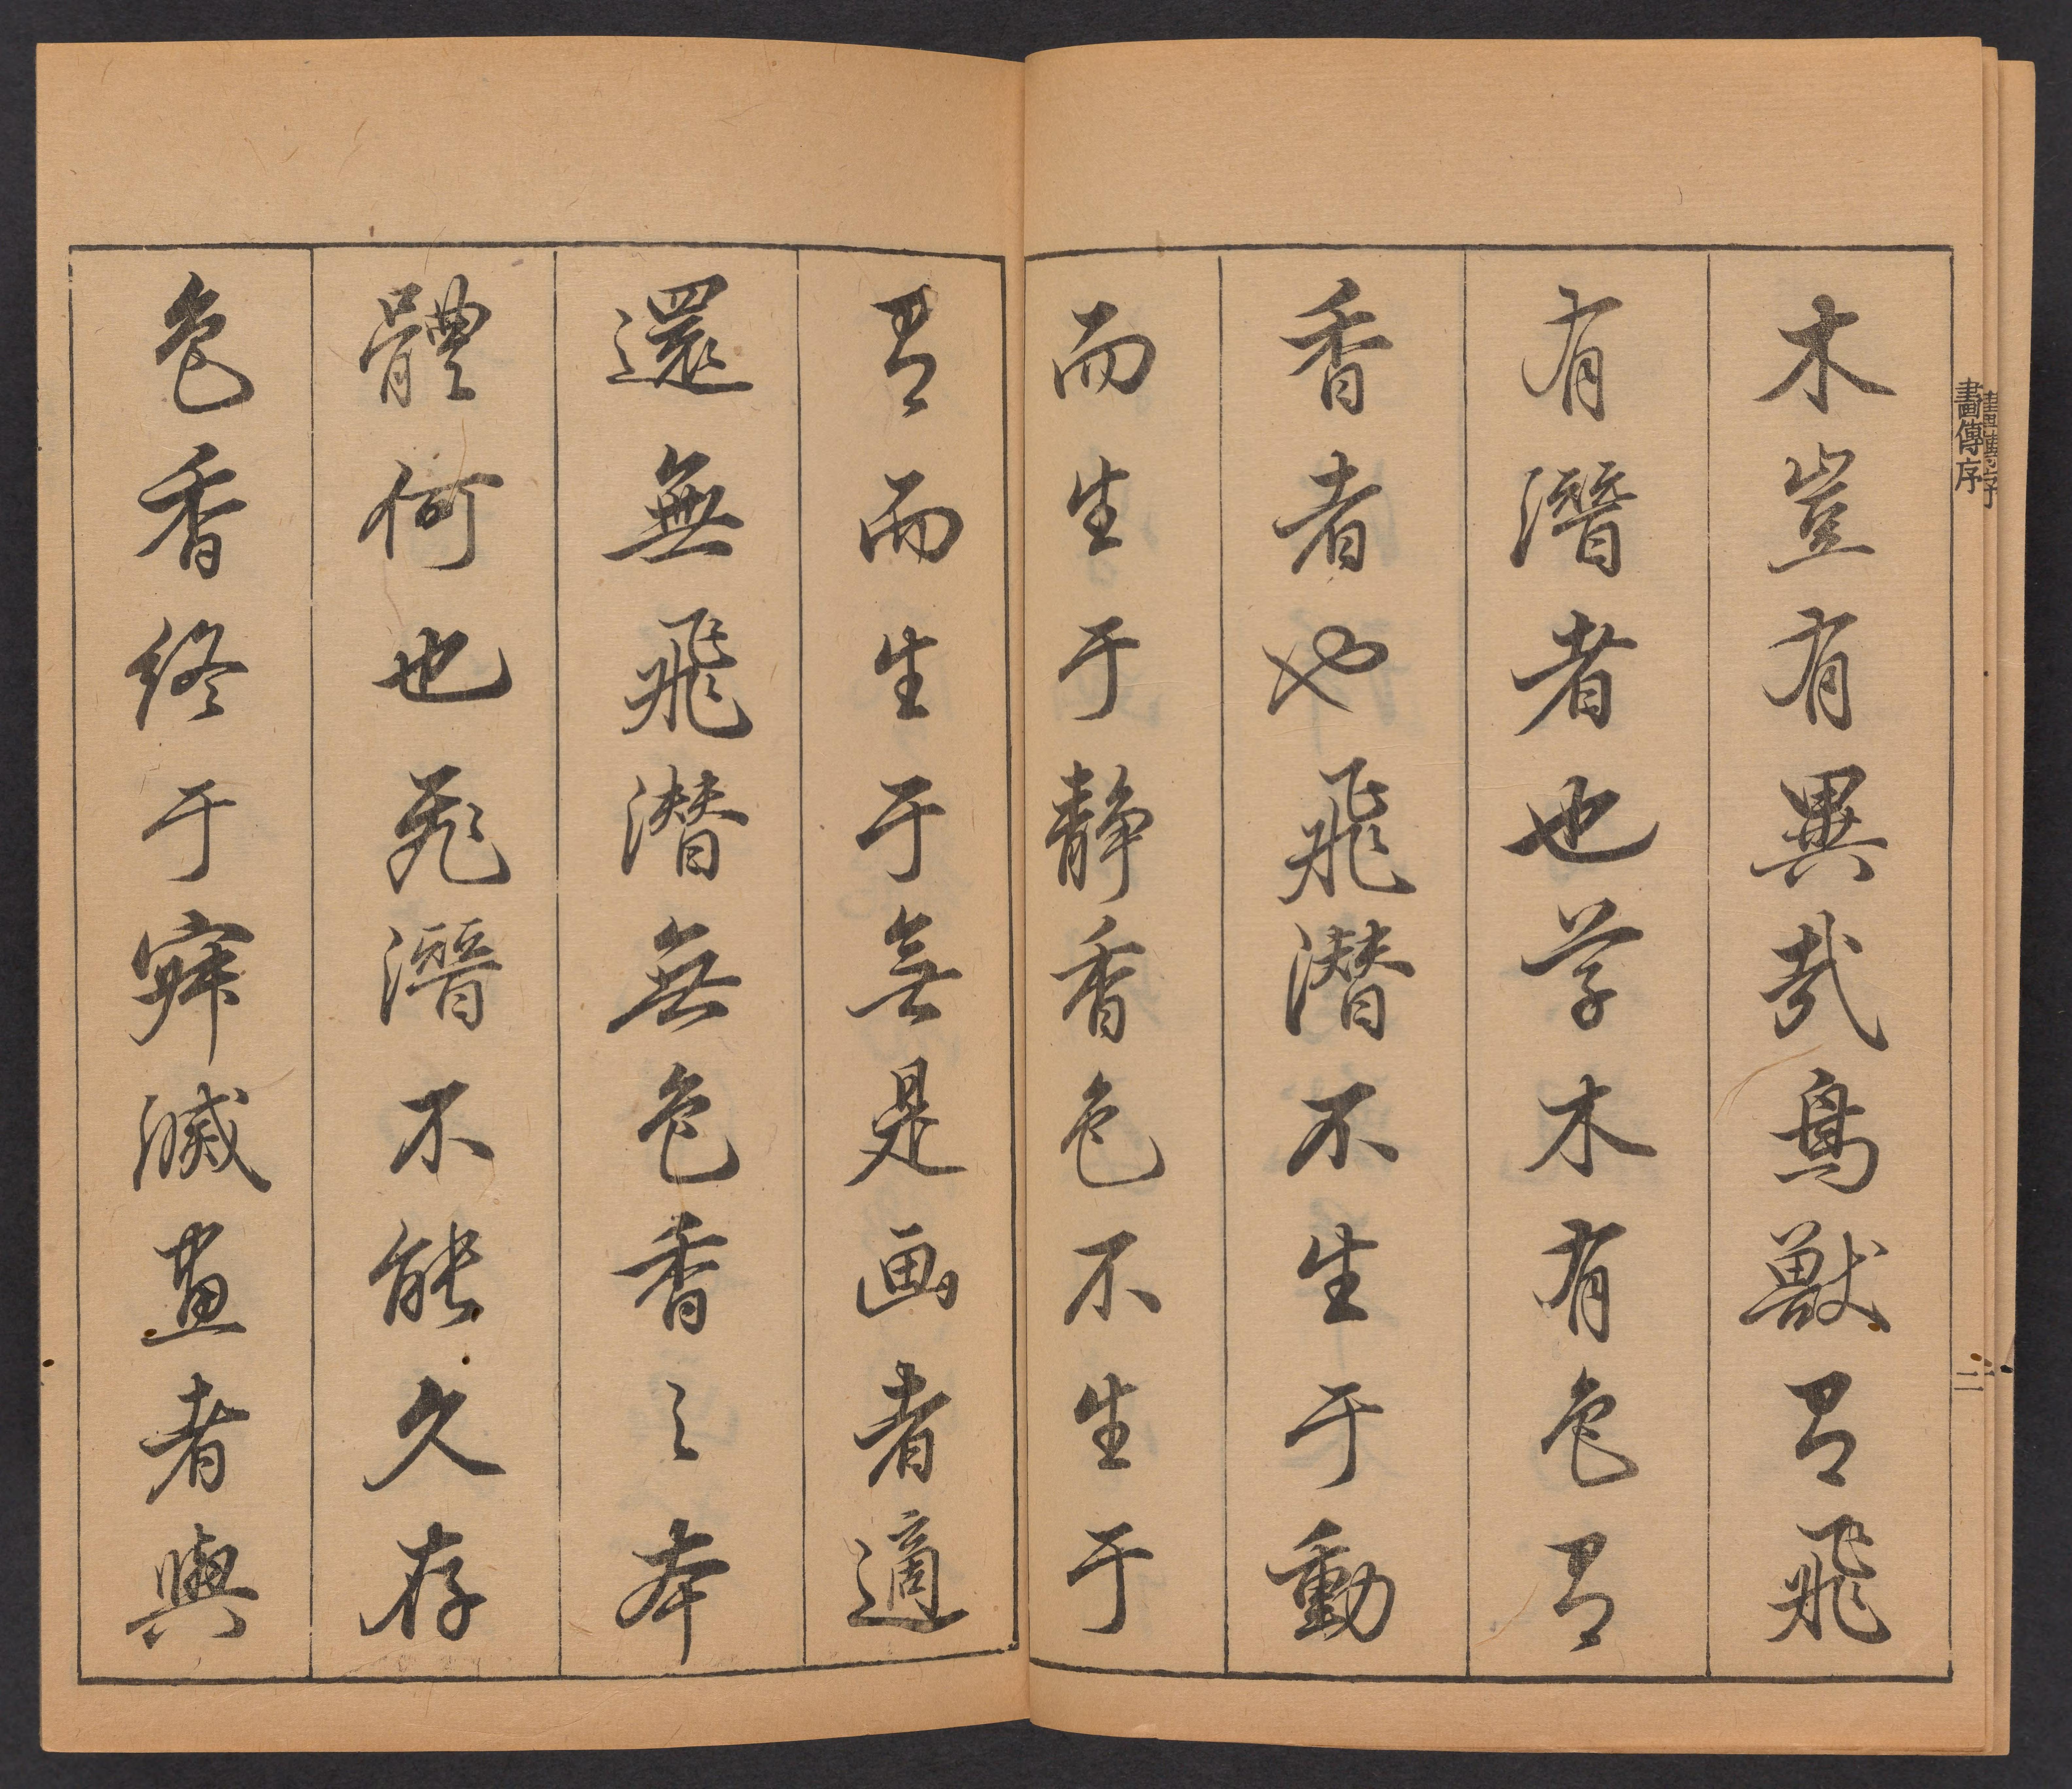 畫傳序
二
木豈有異哉鳥獸有飛
有潛者也草木有色有
香者也飛潛不生于動
而生于静香色不生于
有而生于無是画者適
還無飛潜無色香之本
體何也飛潛不能久存
色香終于寂滅畫者與